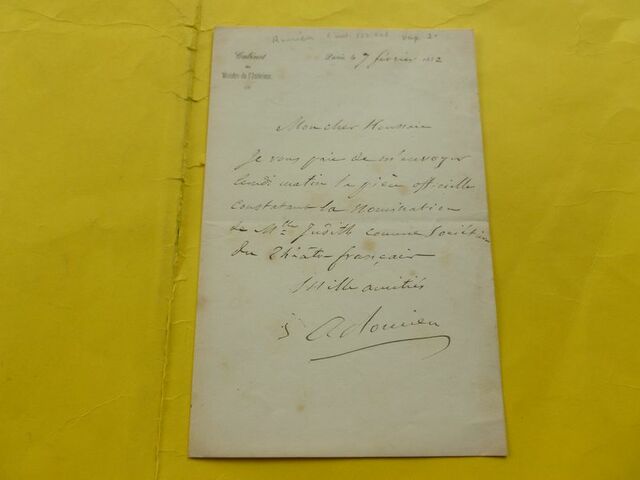 Cabinet
du
Ministre de l'Intérieur.
Paris le 7 février 1852
Mon cher Houssaie
Je vous prie de m'envoyer
lundi matin la pièce officielle
constatant la nomination
de Mlle Judith comme Sociétaire
du Théâtre français
Mille amitiés